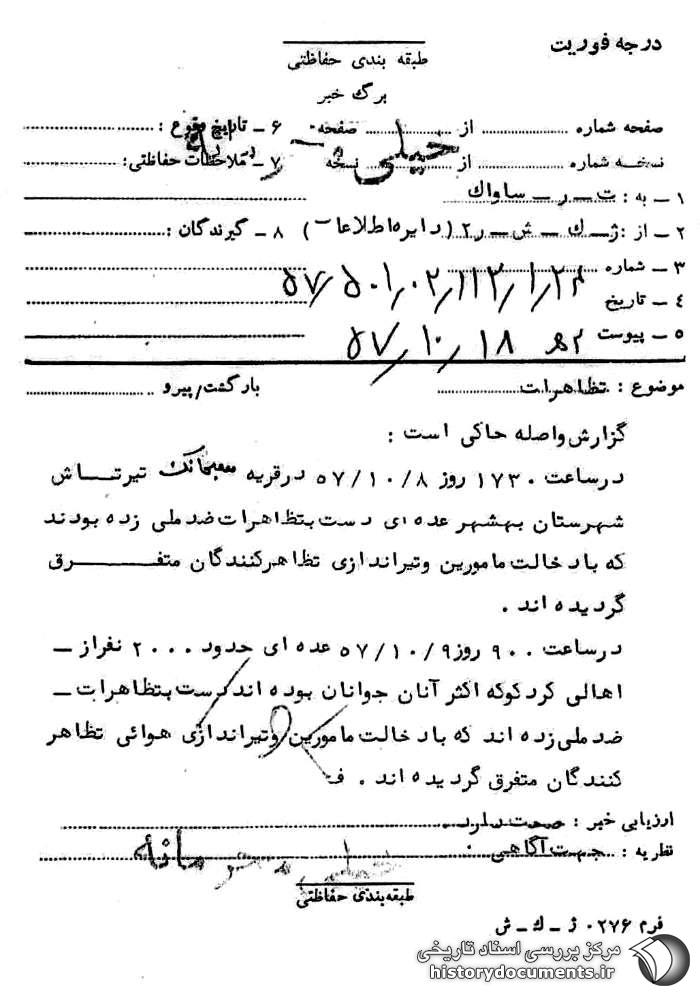 درجه فوریت
طبقه بندی حفاظتی
برگ خبر
صفحه شماره از صفحه ۶ ـ تاریخ وقوع :
نسخه شماره از نسخه ۷ ـ ملاحظات حفاظتی:
خیلی
۱ ـ به : ت ـ ر ـ ساواك
۲ ـ از : ژ ـ ك ـ ش ـ ر۲ (دایره اطلاعات) ۸ ـ گیرندگان :
۳ ـ شماره
۴ ـ تاریخ
۵ ـ پیوست ۵۷/۱۰/۱۸
موضوع : تظاهرات بازگشت/پیرو
گزارش واصله حاکی است :
درساعت ۱۷۳۰ روز ۵۷/۱۰/۸ درقریه تیرتاش
شهرستان بهشهر عده ای دست بتظاهرات ضد ملی زده بودند
که بادخالت مامورین وتیراندازی تظاهرکنندگان متفـــرق
گردیده اند .
درساعت ۹۰۰ روز ۵۷/۱۰/۹ عده ای حدود ۲۰۰۰ نفراز ـ
اهالی کردکوکه اکثر آنان جوانان بوده اند دست بتظاهرات ـ
ضد ملی زده اند که بادخالت مامورین وتیراندازی هوائی تظاهر
کنندگان متفرق گردیده اند . ف
ارزیابی خبر : صحت دارد .
نظریه : جهت آگاهی .
خیلی محرمانه
طبقه بندی حفاظتی
فرم ۰۲۷۶ ژ ـ ك ـ ش
مرکز بررسی اسناد تاریخی
historydocuments.ir